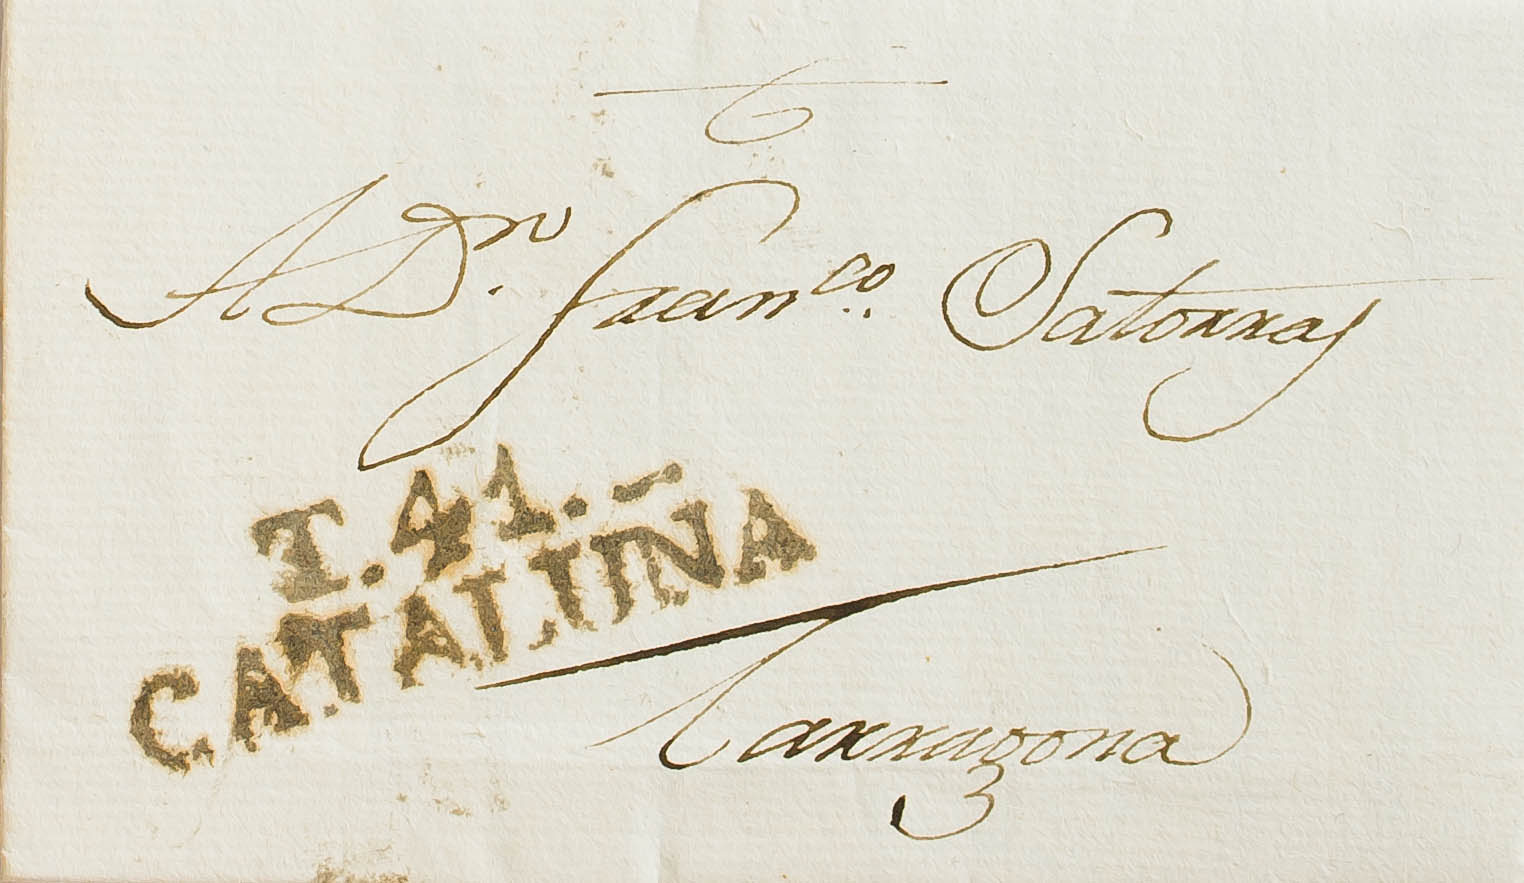 A Dn. Franco. Satorras
T.41.
CATALUÑA
Tarragona